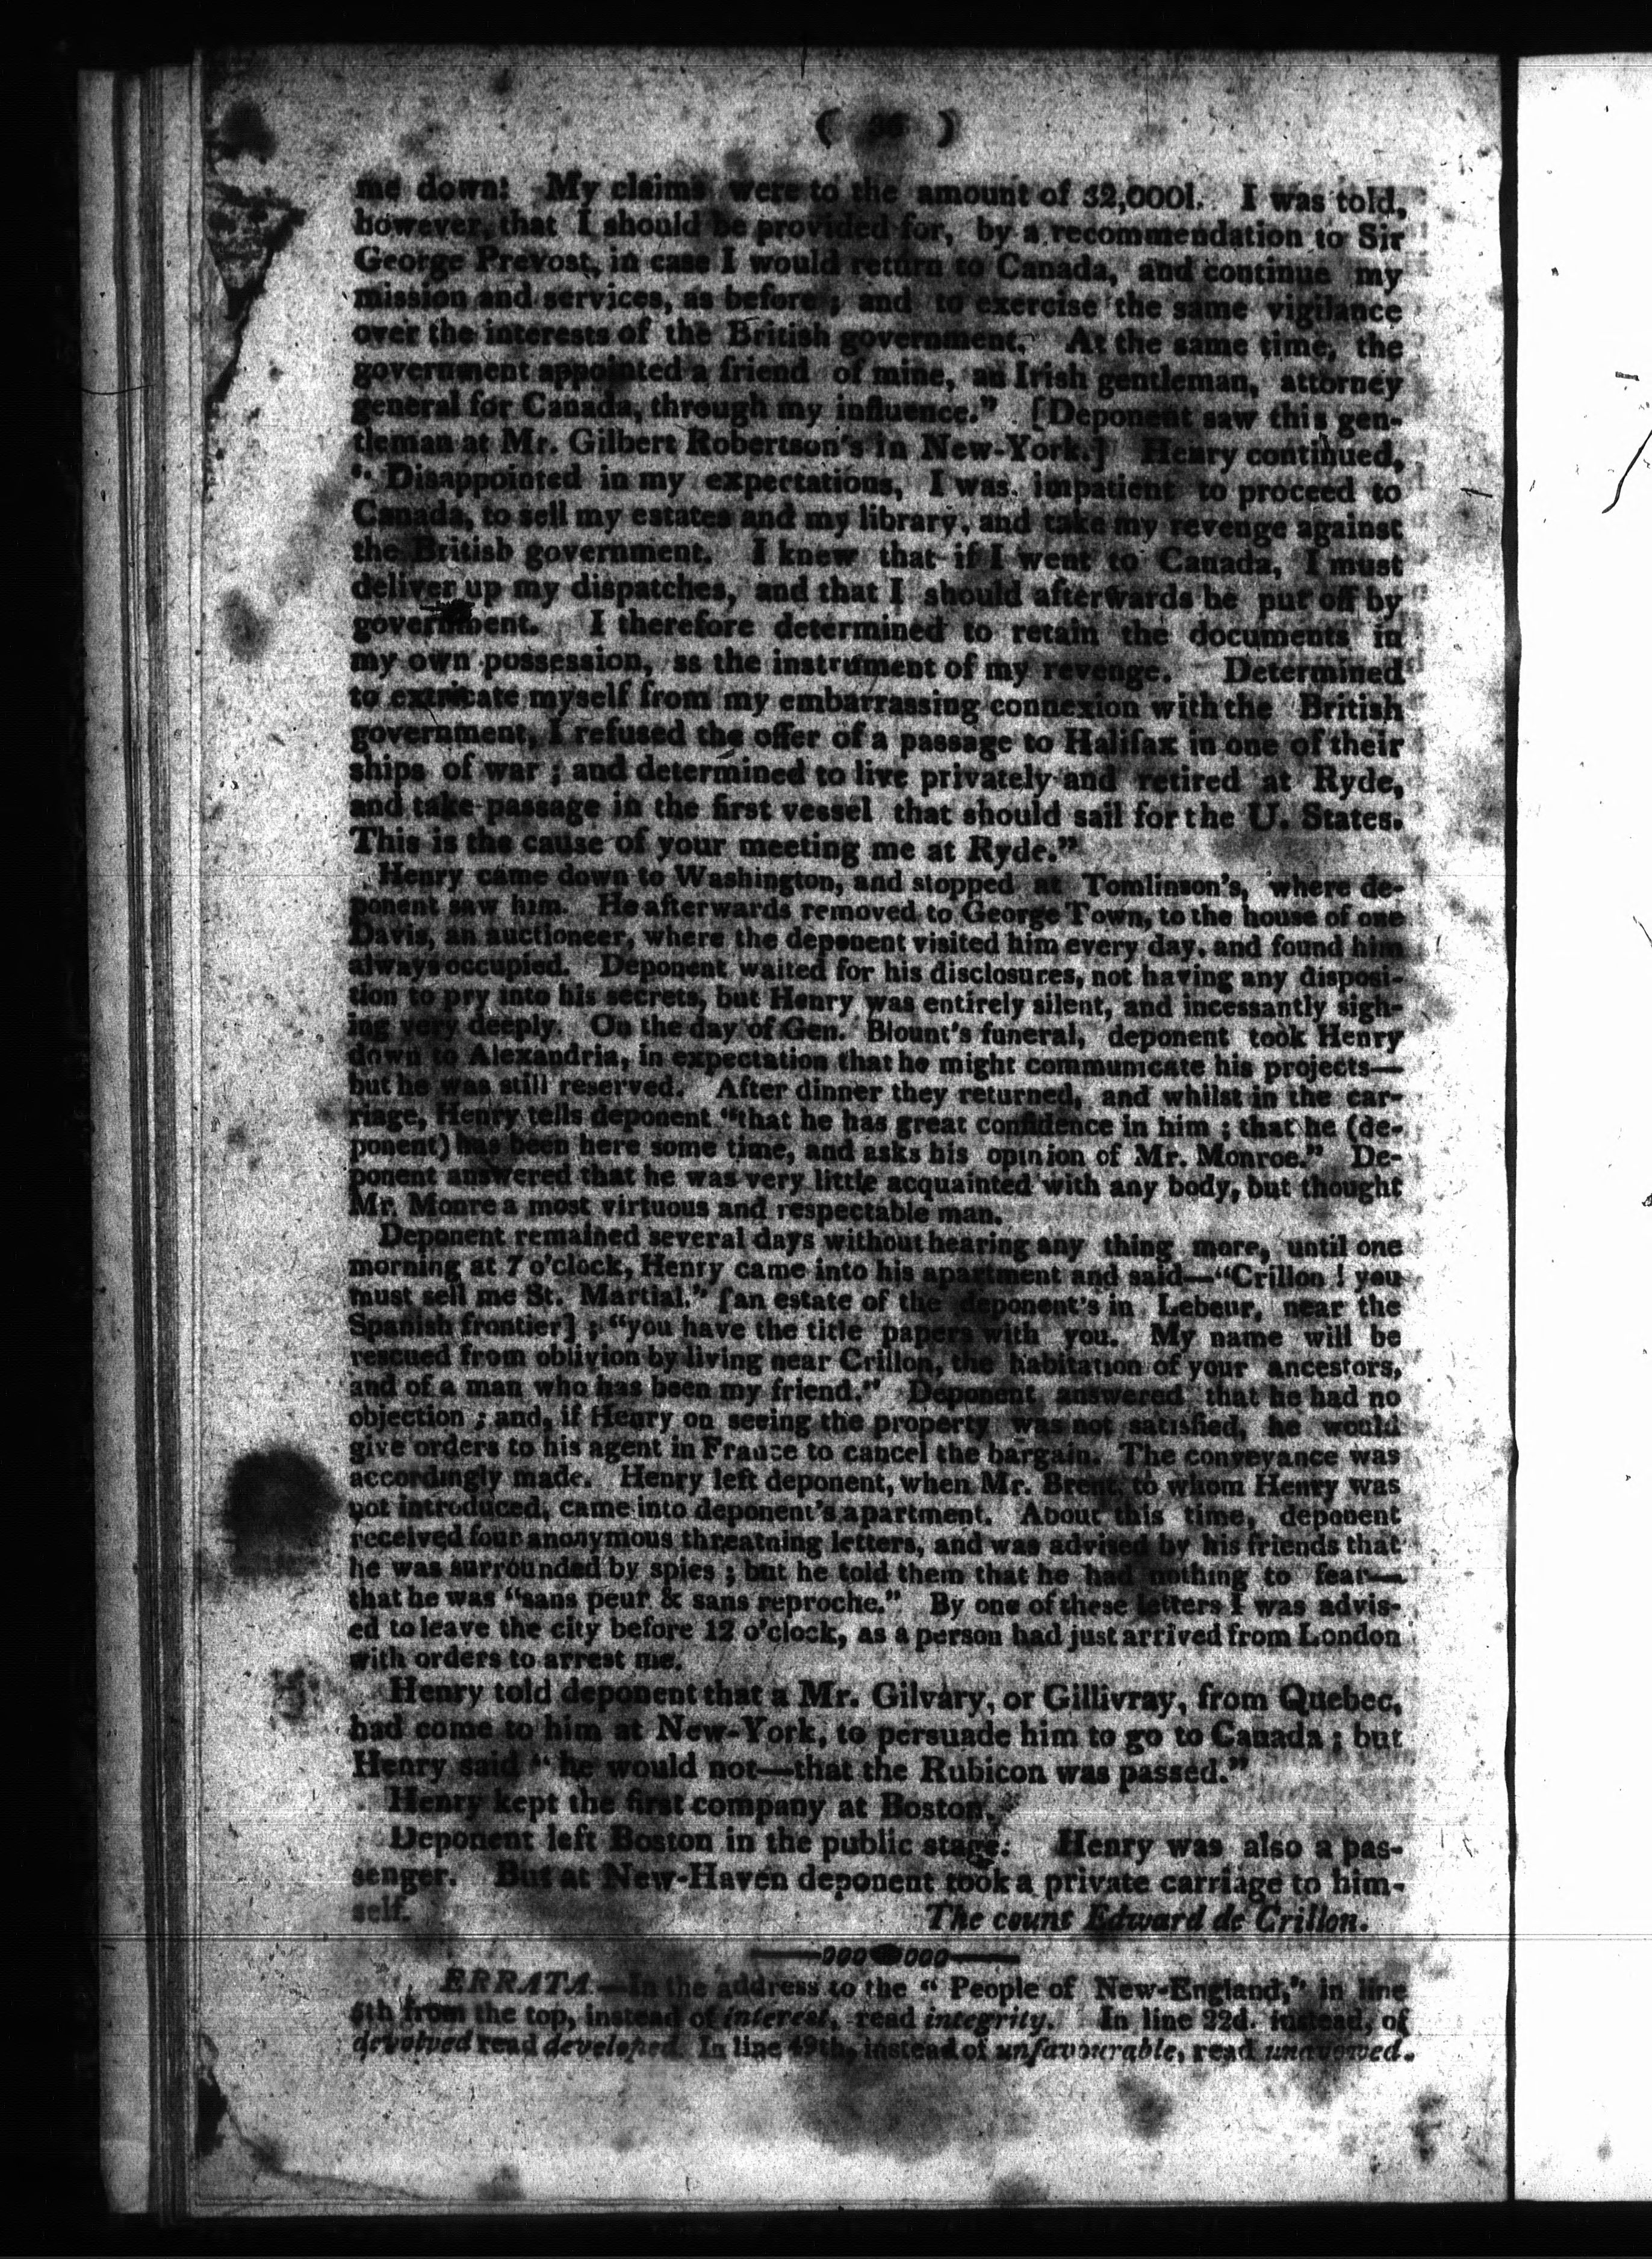 ( 36 )
me down: My claims were to the amount of 32,000l. I was told,
however, that I should be provided for, by a recommendation to Sir
George Prevost, in case I would return to Canada, and continue my
mission and services, as before ; and to exercise the same vigilance
over the interests of the British government. At the same time, the
government appointed a friend of mine, an Irish gentleman, attorney
general for Canada, through my influence." [Deponent saw this gen-
tleman at Mr. Gilbert Robertson's in New-York.] Henry continued,
" Disappointed in my expectations, I was impatient to proceed to
Canada, to sell my estates and my library, and take my revenge against
the British government. I knew that if I went to Canada, I must
deliver up my dispatches, and that I should afterwards be put off by
government. I therefore determined to retain the documents in
my own possession, ss the instrument of my revenge. Determined
to extricate myself from my embarrassing connexion with the British
government, I refused the offer of a passage to Halifax in one of their
ships of war ; and determined to live privately and retired at Ryde,
and take passage in the first vessel that should sail for the U. States.
This is the cause of your meeting me at Ryde."
Henry came down to Washington, and stopped at Tomlinson's, where de-
ponent saw him. He afterwards removed to George Town, to the house of one
Davis, an auctioneer, where the deponent visited him every day, and found him
always occupied. Deponent waited for his disclosures, not having any disposi-
tion to pry into his secrets, but Henry was entirely silent, and incessantly sigh-
ing very deeply. On the day of Gen. Blount's funeral, deponent took Henry
down to Alexandria, in expectation that he might communicate his projects—
but he was still reserved. After dinner they returned, and whilst in the car-
riage, Henry tells deponent "that he has great confidence in him ; that he (de-
ponent) has been here some time, and asks his opinion of Mr. Monroe." De-
ponent answered that he was very little acquainted with any body, but thought
Mr. Monre a most virtuous and respectable man.
Deponent remained several days without hearing any thing more, until one
morning at 7 o'clock, Henry came into his apartment and said—"Crillon ! you
must sell me St. Martial," [an estate of the deponent's in Lebeur, near the
Spanish frontier] ; "you have the title papers with you. My name will be
rescued from oblivion by living near Crillon, the habitation of your ancestors,
and of a man who has been my friend." Deponent answered that he had no
objection ; and, if Henry on seeing the property was not satisfied, he would
give orders to his agent in France to cancel the bargain. The conveyance was
accordingly made. Henry left deponent, when Mr. Brent, to whom Henry was
not introduced, came into deponent's apartment. About this time, deponent
received four anonymous threatning letters, and was advised by his friends that
he was surrounded by spies ; but he told them that he had nothing to fear—
that he was "sans peur & sans reproche." By one of these letters I was advis-
ed to leave the city before 12 o'clock, as a person had just arrived from London
with orders to arrest me.
Henry told deponent that a Mr. Gilvary, or Gillivray, from Quebec,
had come to him at New-York, to persuade him to go to Canada ; but
Henry said " he would not—that the Rubicon was passed."
Henry kept the first company at Boston.
Deponent left Boston in the public stage: Henry was also a pas-
senger. But at New-Haven deponent took a private carriage to him-
self.
The count Edward de Crillon.
ERRATA—In the address to the " People of New-England," in line
6th from the top, instead of interest, read integrity. In line 22d. instead, of
devolved read developed. In line 49th, instead of unfavourable, read unavowed.